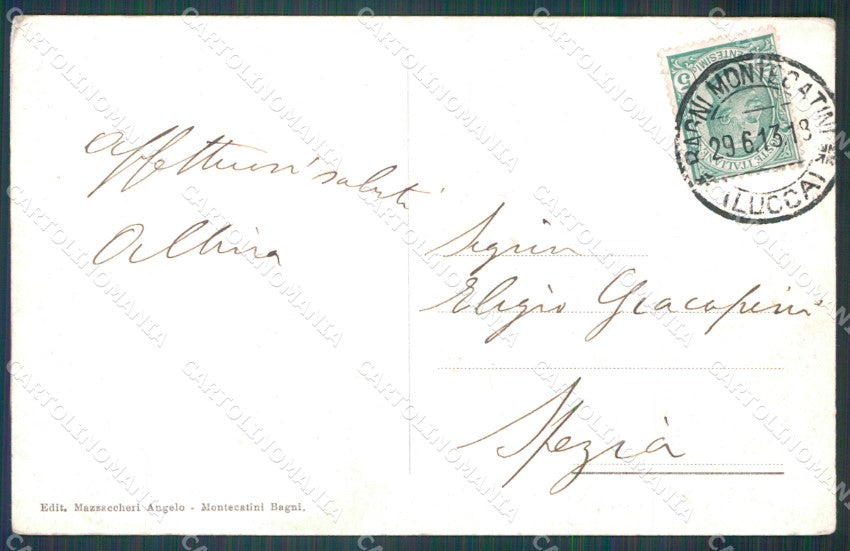 Affettuosi saluti
Albina
Signor
Eligio Giacopini
Spezia
CENTESIMI 5
POSTE ITALIANE
BAGNI MONTECATINI
29.6.13.18
(LUCCA)
Edit. Mazzaccheri Angelo - Montecatini Bagni.
CARTOLINOMANIA